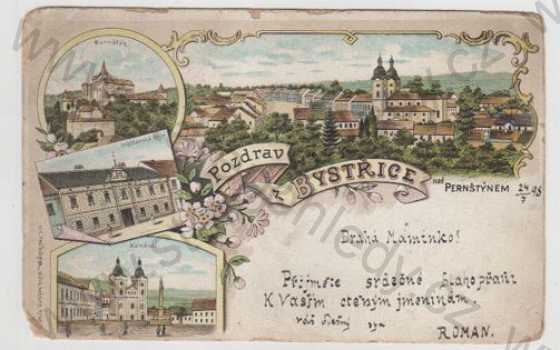 Pernštýn.
Pozdrav
z
BYSTŘICE
nad
PERNŠTÝNEM
24/7 98
Náměstí
Drahá Maminko!
Přijměte srdečné blahopřání
K Vašim cteným jmeninám.
váš
syn
ROMAN.